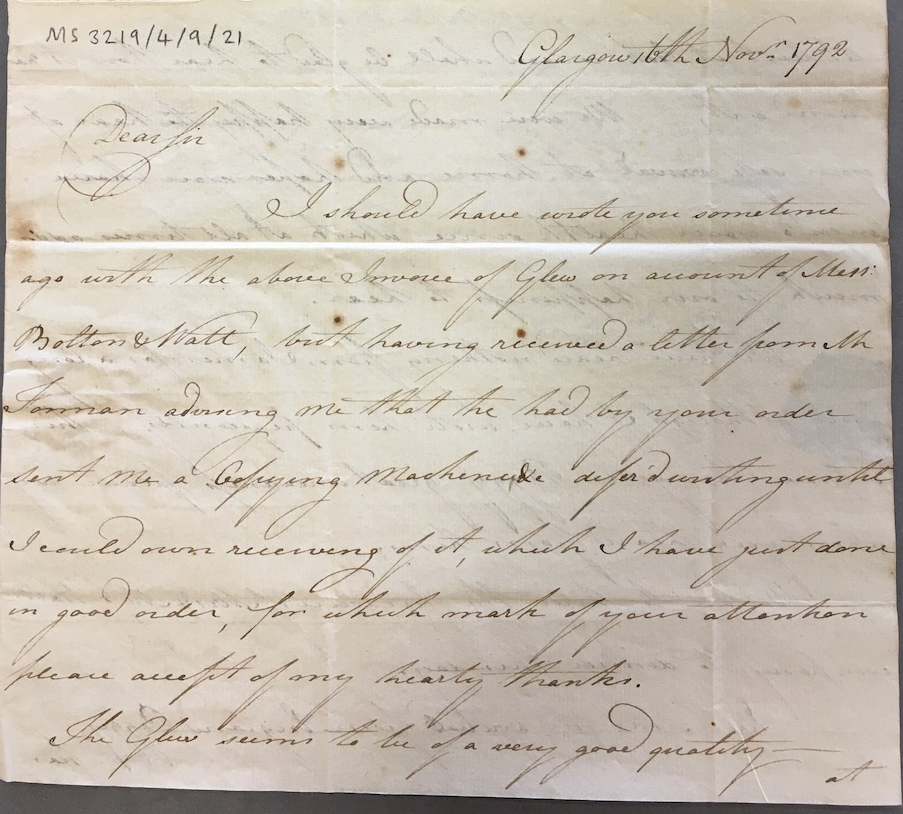 MS 3219/4/9/21
Glasgow 16th Novr. 1792
Dear Sir
I should have wrote you sometime
ago with the above Invoice of Glew on account of Mess:
Bolton & Watt, but having received a letter from Mr
Forman advising me that he had by your order
sent me a Copying Machine & defer'd writing until
I could own receiving of it, which I have just done
in good order, for which mark of your attention
please accept of my hearty thanks.
The Glew seems to be of a very good quality —
at